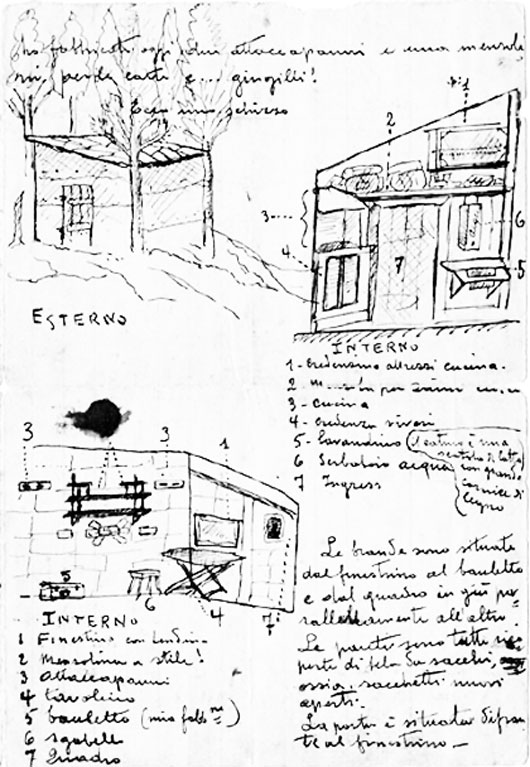 ho fabbricato oggi due attaccapanni e una mensola
per le carte e... gingilli!
Ecco uno schizzo
ESTERNO
1
2
3
4
5
6
7
INTERNO
1 - Credenzino attrezzi cucina.
2 - per cucina
3 - Cucina
4 - credenza viveri
5 - Lavandino (l'catino è una
scatola di latta
con grande
cornice di
legno
6 Serbatoio acqua
7 Ingresso
3
3
1
7
5
6
4
7
INTERNO
1 Finestrino con tendin.
2 Mensolina a stile!
3 Attaccapanni
4 tavolino
5 bauletto (mia fabb ne)
6 sgabello
7 Quadro
Le brande sono situate
dal finestrino al bauletto
e dal quadro in giù pa-
rallelamente all'altra.
Le pareti sono tutte ri-
porte di tela da sacchi,
ossia sacchetti nuovi
aperti.
La porta è situata difron-
te al finestrino -